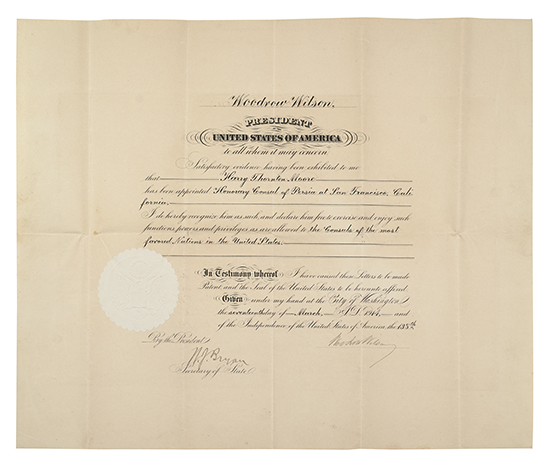 Woodrow Wilson.
PRESIDENT
OF
UNITED STATES OF AMERICA
to all whom it may concern
Satisfactory evidence having been exhibited to me
that Harry Thornton Moore
has been appointed Honorary Consul of Persia at San Francisco, Cali
fornia.
I do hereby recognize him as such, and declare him free to exercise and enjoy such
functions, powers and privileges as are allowed to the Consuls of the most
favored Nations in the United States.
In Testimony whereof I have caused these Letters to be made
Patent, and the Seal of the United States to be hereunto affixed.
Given under my hand at the City of Washington
the seventeenth day of March, A.D. 1914, and
of the Independence of the United States of America, the 138th.
By the President
Woodrow Wilson
W. J. Bryan
Secretary of State.